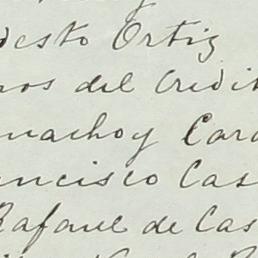 desto Ortiz
nos del Credit
machoy Car
ancisco Cas
Rafael de Cas